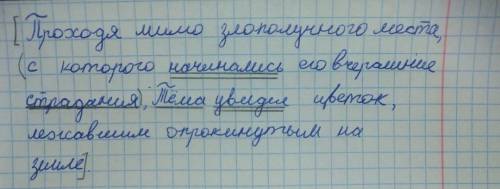 [Проходя мимо злополучного места,
(с которого начинались его вчерашние
страдания), Тёма увидел цветок,
лежавшим опрокинутым на
земле].